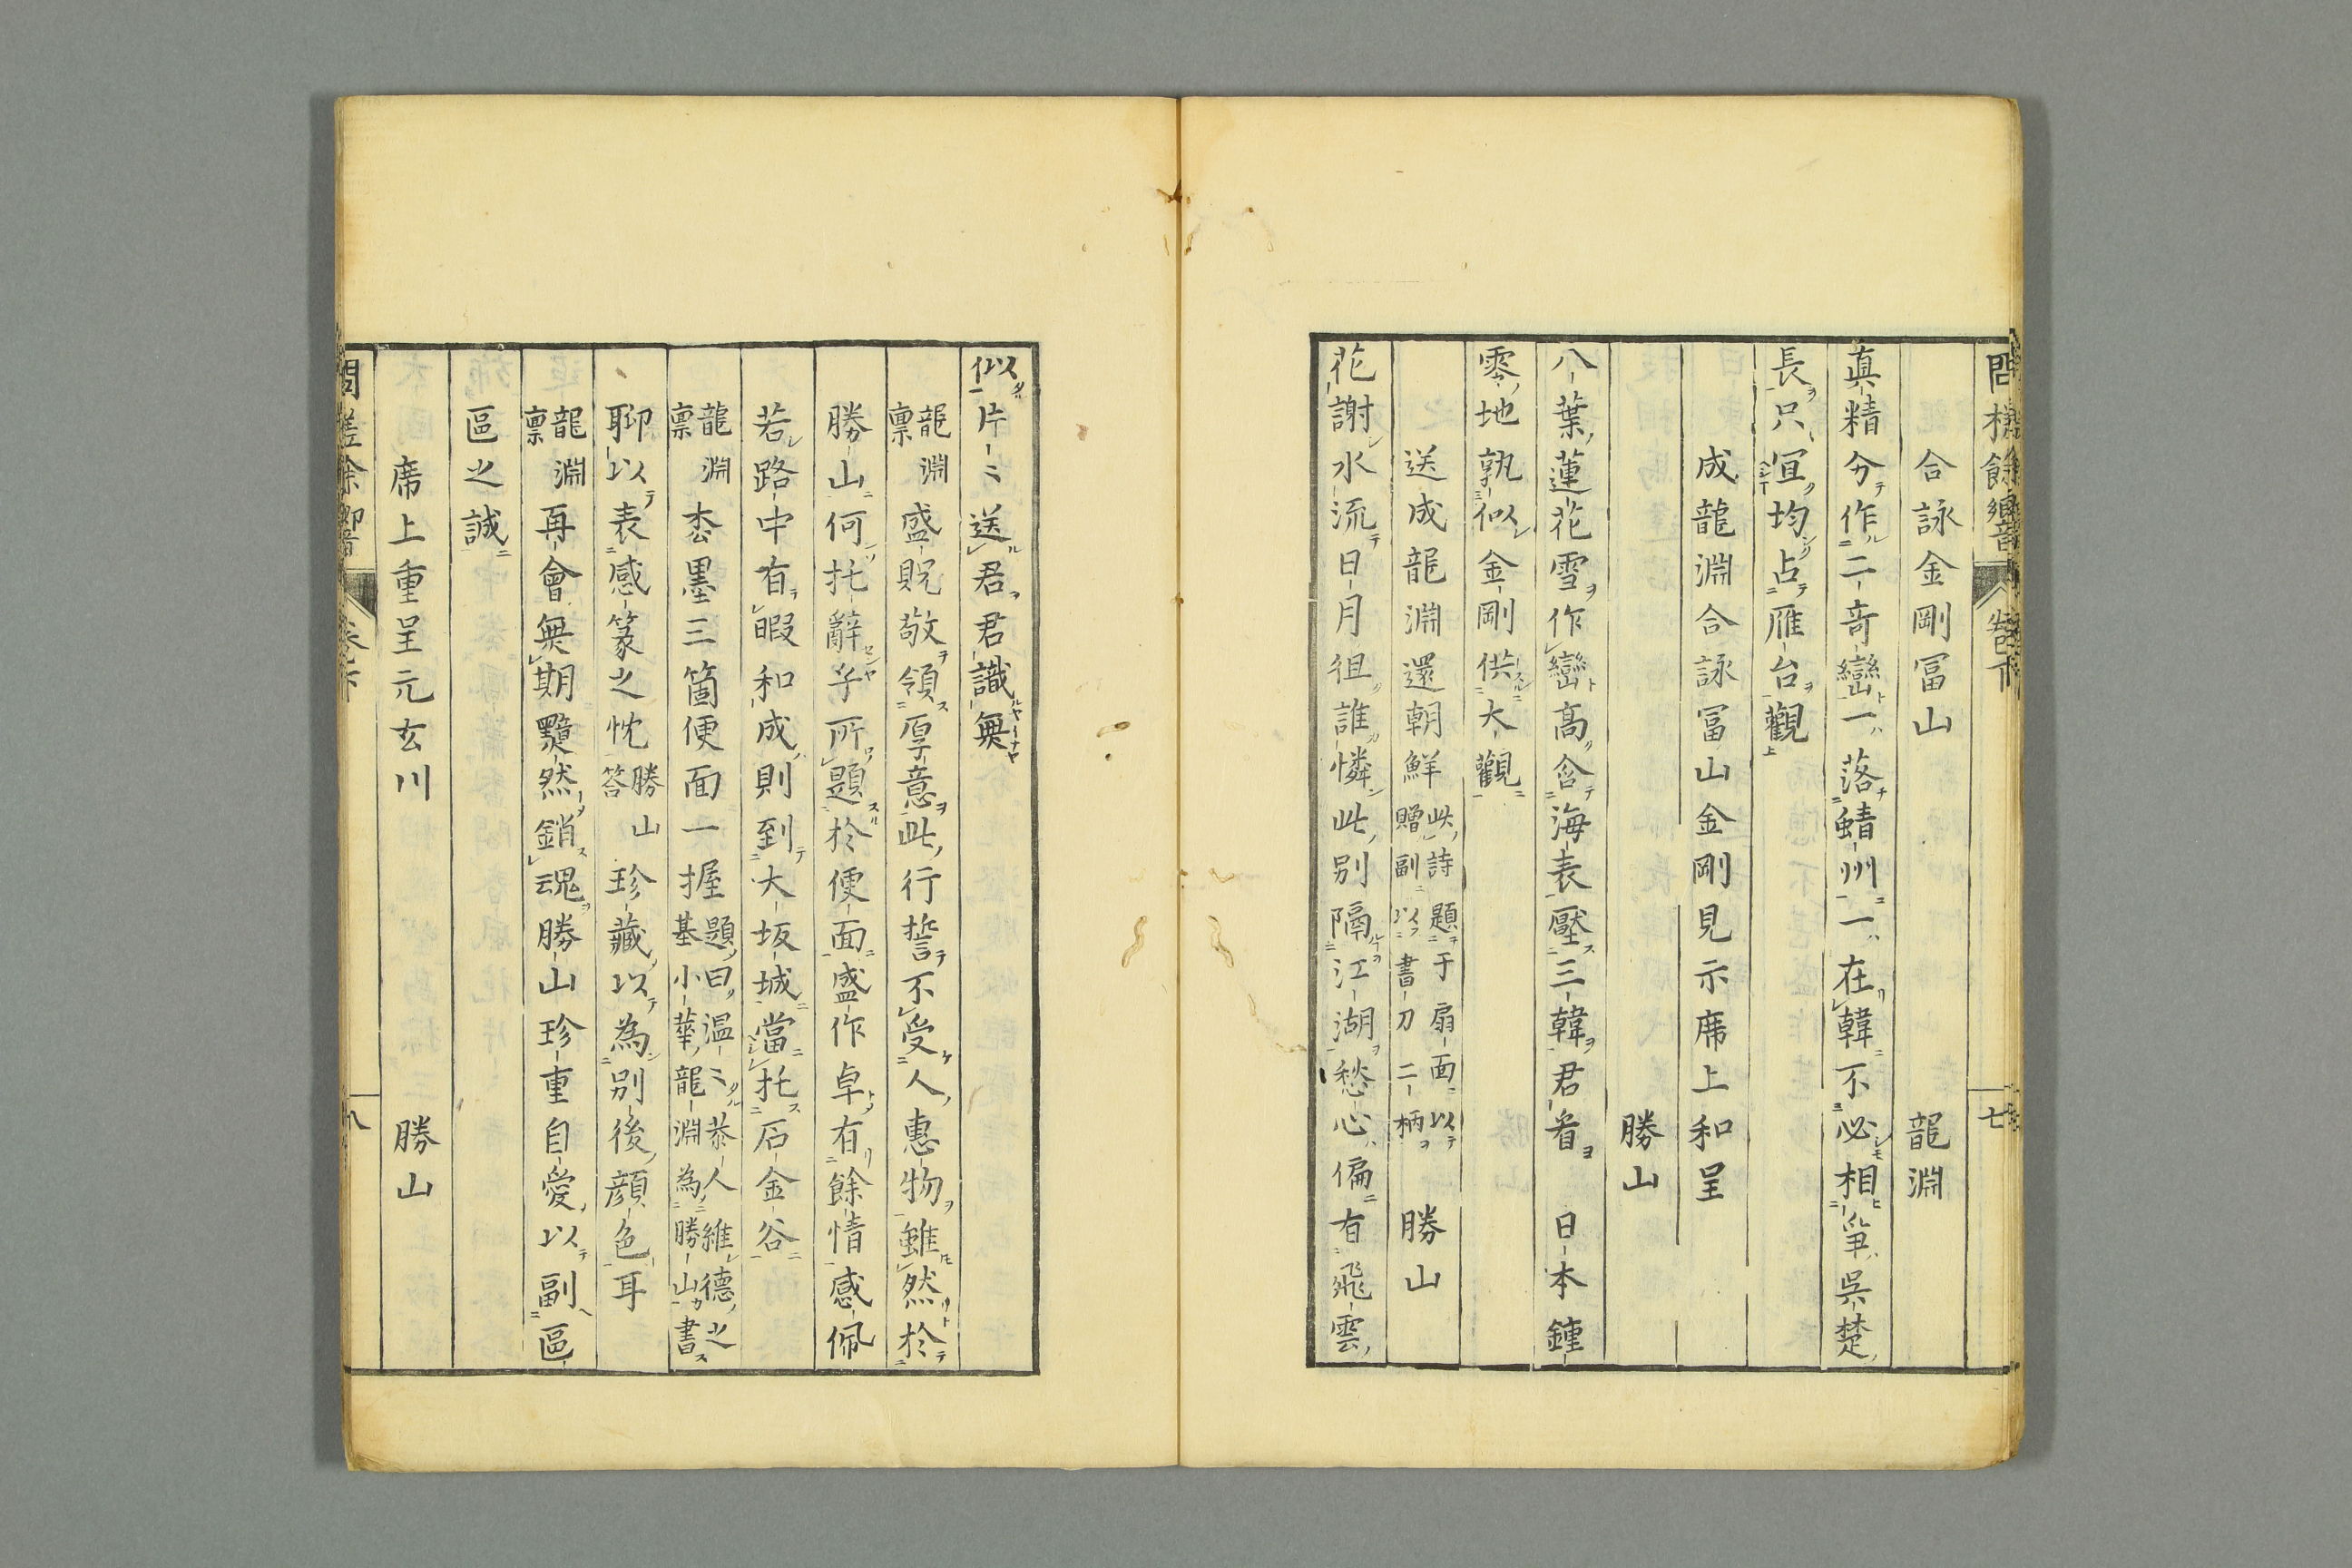 問槎餘響 卷下 七
合詠金剛冨山 龍淵
真精分作二奇巒一落蜻州一在韓不必相爭吳楚
長只宜均占雁台觀
成龍淵合詠冨山金剛見示席上和呈
勝山
八葉蓮花雪作巒高含海表壓三韓君看日本鍾
靈地孰似金剛供大觀
送成龍淵還朝鮮 此詩題于扇面以贈副以書刀二柄 勝山
花謝水流日月徂誰憐此別隔江湖愁心偏有飛雲
似片〻送君君識無
龍淵稟 盛貺敬領厚意此行誓不受人惠物雖然於
勝山何托辭乎所題於便面盛作卓有餘情感佩
若路中有暇和成則到大坂城當托石金谷
龍淵稟 枩墨三箇便面一握 題曰温〻恭人維德之基小華龍淵為勝山書
聊以表感篆之忱 勝山答 珍藏以為別後顔色耳
龍淵稟 再會無期黯然銷魂勝山珍重自愛以副區
區之誠
席上重呈元玄川 勝山
問槎餘響 卷下 八